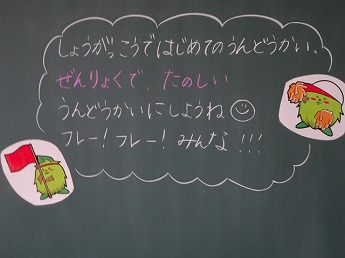 しょうがっこうではじめてのうんどうかい。
ぜんりょくで、たのしい
うんどうかいにしようね
フレー!フレー!みんな!!!